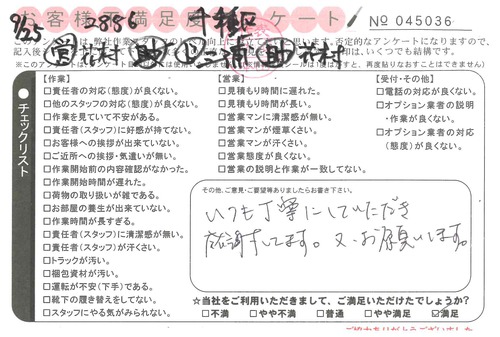 お客様満足度アンケート
№ 045036
9/25 2886 千種区
営 花村 助 助 花村
【作業】
□責任者の対応(態度)が良くない。
□他のスタッフの対応(態度)が良くない。
□作業を見ていて不安がある。
□責任者(スタッフ)に好感が持てない。
□お客様への挨拶が出来ていない。
□ご近所への挨拶・気遣いが無い。
□作業開始前の内容確認がなかった。
□作業開始時間が遅れた。
□荷物の取り扱いが雑である。
□お部屋の養生が出来ていない。
□作業時間が長すぎる。
□責任者(スタッフ)に清潔感が無い。
□責任者(スタッフ)が汗くさい。
□トラックが汚い。
□梱包資材が汚い。
□運転が安全(下手)である。
□靴下の履き替えをしてない。
□スタッフにやる気がみられない。
【営業】
□見積もり時間に遅れた。
□見積もり時間が長い。
□営業マンに清潔感が無い。
□営業マンが煙草くさい。
□営業マンが汗くさい。
□営業態度が良くない。
□営業の説明と作業が一致してない。
【受付・その他】
□電話の対応が良くない。
□オプション業者の説明
・作業が良くない。
□オプション業者の対応
(態度)が良くない。
チェックリスト
その他、ご意見・ご要望等ありましたらお書き下さい。
いつも丁寧にしていただき
感謝してます。又、お願いします。
☆当社をご利用いただきまして、ご満足いただけたでしょうか?
□不満 □やや不満 □普通 □やや満足 ☑満足
ご協力ありがとうございました